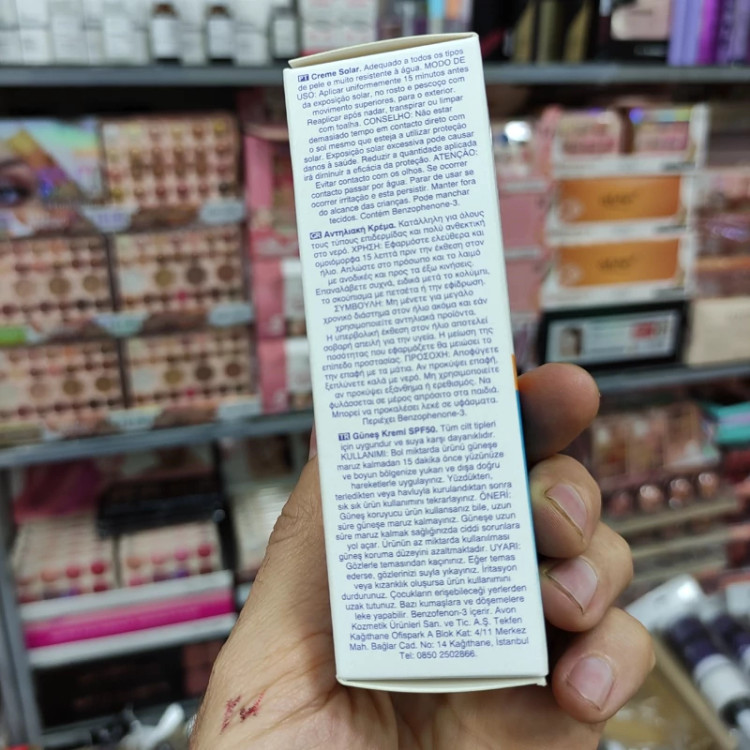 PT Creme Solar. Adequado a todos os tipos
de pele e muito resistente à água. MODO DE
USO: Aplicar uniformemente 15 minutos antes
da exposição solar, no rosto e pescoço com
movimento superiores, para o exterior.
Reaplicar após nadar, transpirar ou limpar
com toalha. CONSELHO: Não estar
demasiado tempo em contacto direto com
o sol mesmo que esteja a utilizar proteção
solar. Exposição solar excessiva pode causar
danos à saúde. Reduzir a quantidade aplicada
irá diminuir a eficácia da proteção. ATENÇÃO:
Evitar contacto com os olhos. Se ocorrer
contacto passar por água. Parar de usar se
ocorrer irritação e esta persistir. Manter fora
do alcance das crianças. Pode manchar
tecidos. Contém Benzophenone-3.
GR Αντηλιακή Κρέμα. Κατάλληλη για όλους
τους τύπους επιδερμίδας και πολύ ανθεκτική
στο νερό. ΧΡΗΣΗ: Εφαρμόστε ελεύθερα και
ομοιόμορφα 15 λεπτά πριν την έκθεση στον
ήλιο. Απλώστε στο πρόσωπο και το λαιμό
με ανοδικές και προς τα έξω κινήσεις.
Επαναλάβετε συχνά, ειδικά μετά το κολύμπι,
το σκούπισμα με πετσέτα ή την εφίδρωση.
ΣΥΜΒΟΥΛΗ: Μη μένετε για μεγάλο
χρονικό διάστημα στον ήλιο ακόμα και εάν
χρησιμοποιείτε αντηλιακά προϊόντα.
Η υπερβολική έκθεση στον ήλιο αποτελεί
σοβαρή απειλή για την υγεία. Η μείωση της
ποσότητας που εφαρμόζετε θα μειώσει το
επίπεδο προστασίας. ΠΡΟΣΟΧΗ: Αποφύγετε
την επαφή με τα μάτια. Αν προκύψει επαφή,
ξεπλύνετε καλά με νερό. Μη χρησιμοποιείτε
αν προκύψει εξάνθημα ή ερεθισμός. Να
φυλάσσεται σε μέρος απρόσιτο στα παιδιά.
Μπορεί να προκαλέσει λεκέ σε υφάσματα.
Περιέχει Benzophenone-3.
TR Güneş Kremi SPF50. Tüm cilt tipleri
için uygundur ve suya karşı dayanıklıdır.
KULLANIMI: Bol miktarda ürünü güneşe
maruz kalmadan 15 dakika önce yüzünüze
ve boyun bölgenize yukarı ve dışa doğru
hareketlerle uygulayınız. Yüzdükten,
terledikten veya havluyla kurulandıktan sonra
sık sık ürün kullanımını tekrarlayınız. ÖNERİ:
Güneş koruyucu ürün kullansanız bile, uzun
süre güneşe maruz kalmayınız. Güneşe uzun
süre maruz kalmak sağlığınızda ciddi sorunlara
yol açar. Ürünün az miktarda kullanılması
güneş koruma düzeyini azaltmaktadır. UYARI:
Gözlerle temasından kaçınınız. Eğer temas
ederse, gözlerinizi suyla yıkayınız. İritasyon
veya kızarıklık oluşursa ürün kullanımını
durdurunuz. Çocukların erişebileceği yerlerden
uzak tutunuz. Bazı kumaşlara ve döşemelere
leke yapabilir. Benzofenon-3 içerir. Avon
Kozmetik Ürünleri San. ve Tic. A.Ş. Tekfen
Kağıthane Ofispark A Blok Kat: 4/11 Merkez
Mah. Bağlar Cad. No: 14 Kağıthane, İstanbul
Tel: 0850 2502866.